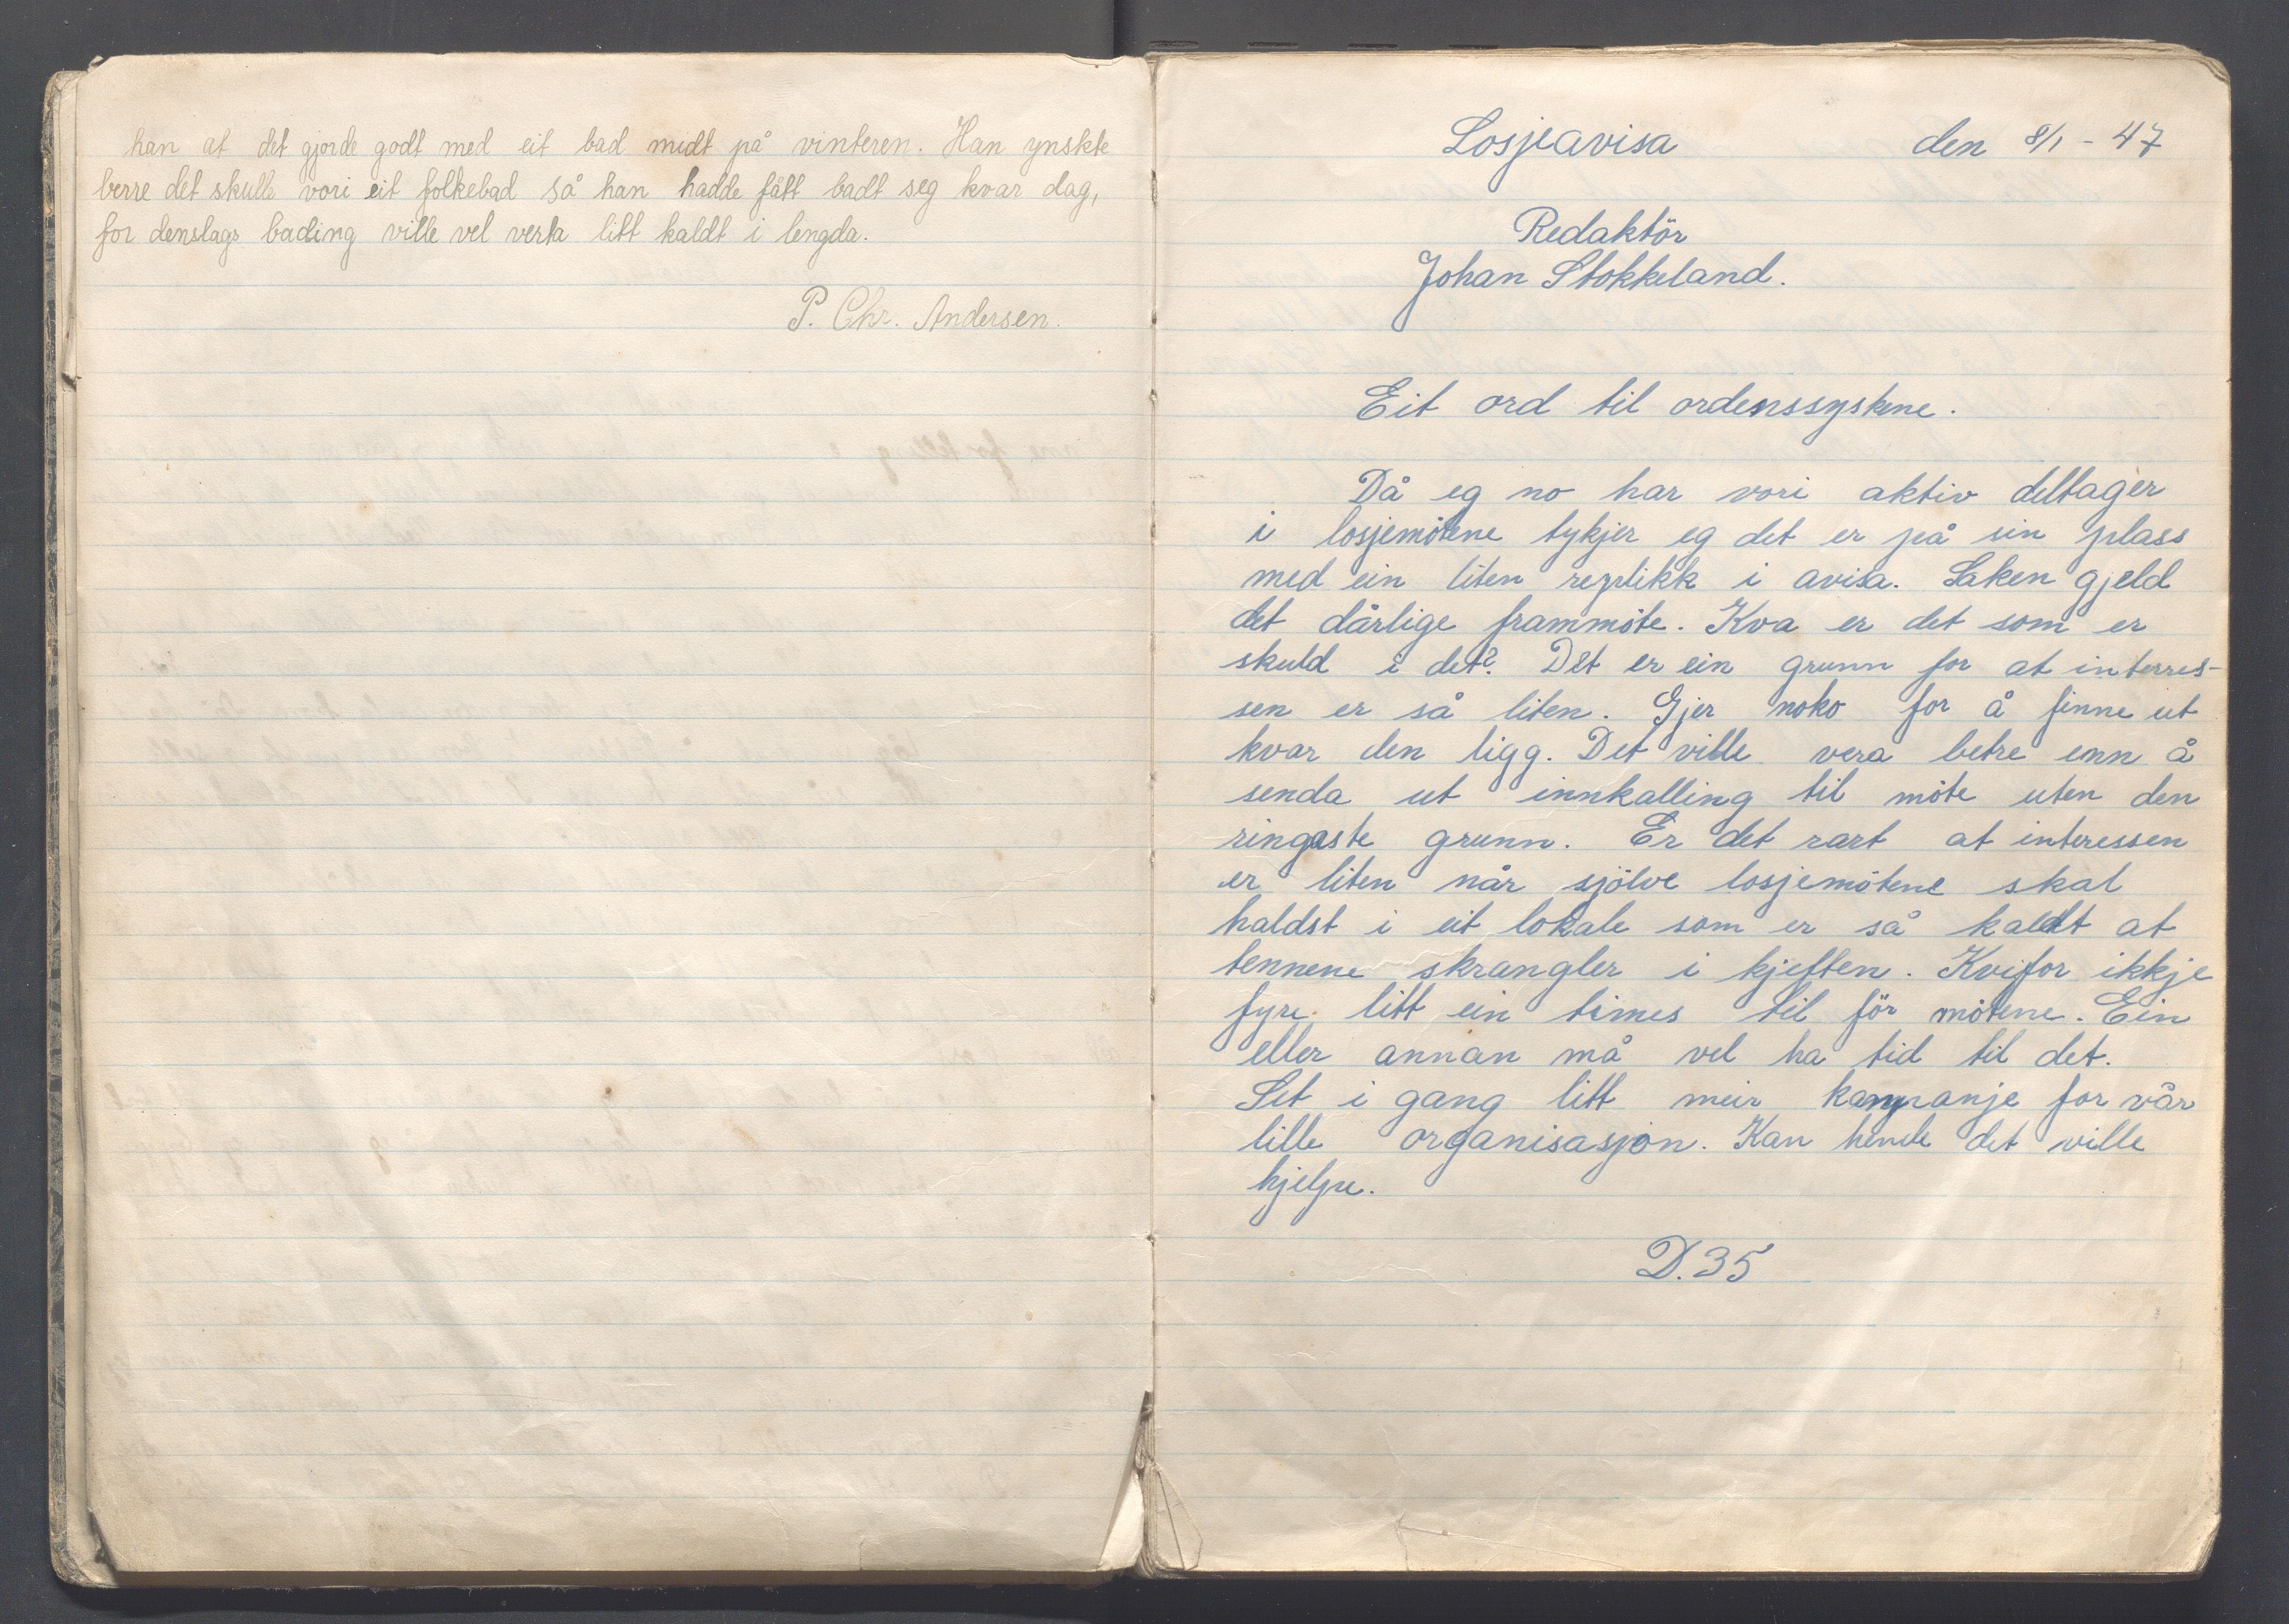 han at det gjorde godt med eit bad midt på vinteren. Han ynskte
berre det skulle vori eit folkebad så han hadde fått badt seg kvar dag,
for denslags bading ville vel verta litt kaldt i lengda.
P. Chr. Andersen.
Losjeavisa den 8/1 - 47
Redaktör
Johan Stokkeland.
Eit ord til ordenssyskene.
Då eg no har vori aktiv deltager
i losjemötene tykjer eg det er på sin plass
med ein liten replikk i avisa. Saken gjeld
det dårlige frammöte. Kva er det som er
skuld i det? Det er ein grunn for at interres-
sen er så liten. Gjer noko for å finne ut
kvar den ligg. Det ville vera betre enn å
senda ut innkalling til möte uten den
ringaste grunn. Er det rart at interessen
er liten når sjölve losjemötene skal
haldst i eit lokale som er så kaldt at
tennene skrangler i kjeften. Kvifor ikkje
fyre litt ein times tid för mötene. Ein
eller annan må vel ha tid til det.
Set i gang litt meir kampanje for vår
lille organisasjon. Kan hende det ville
hjelpe.
D.35